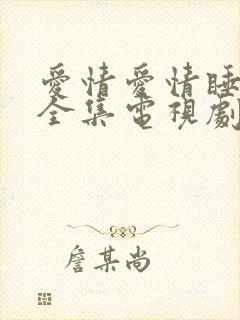 愛情愛情睡
全集電視劇
詹某尚